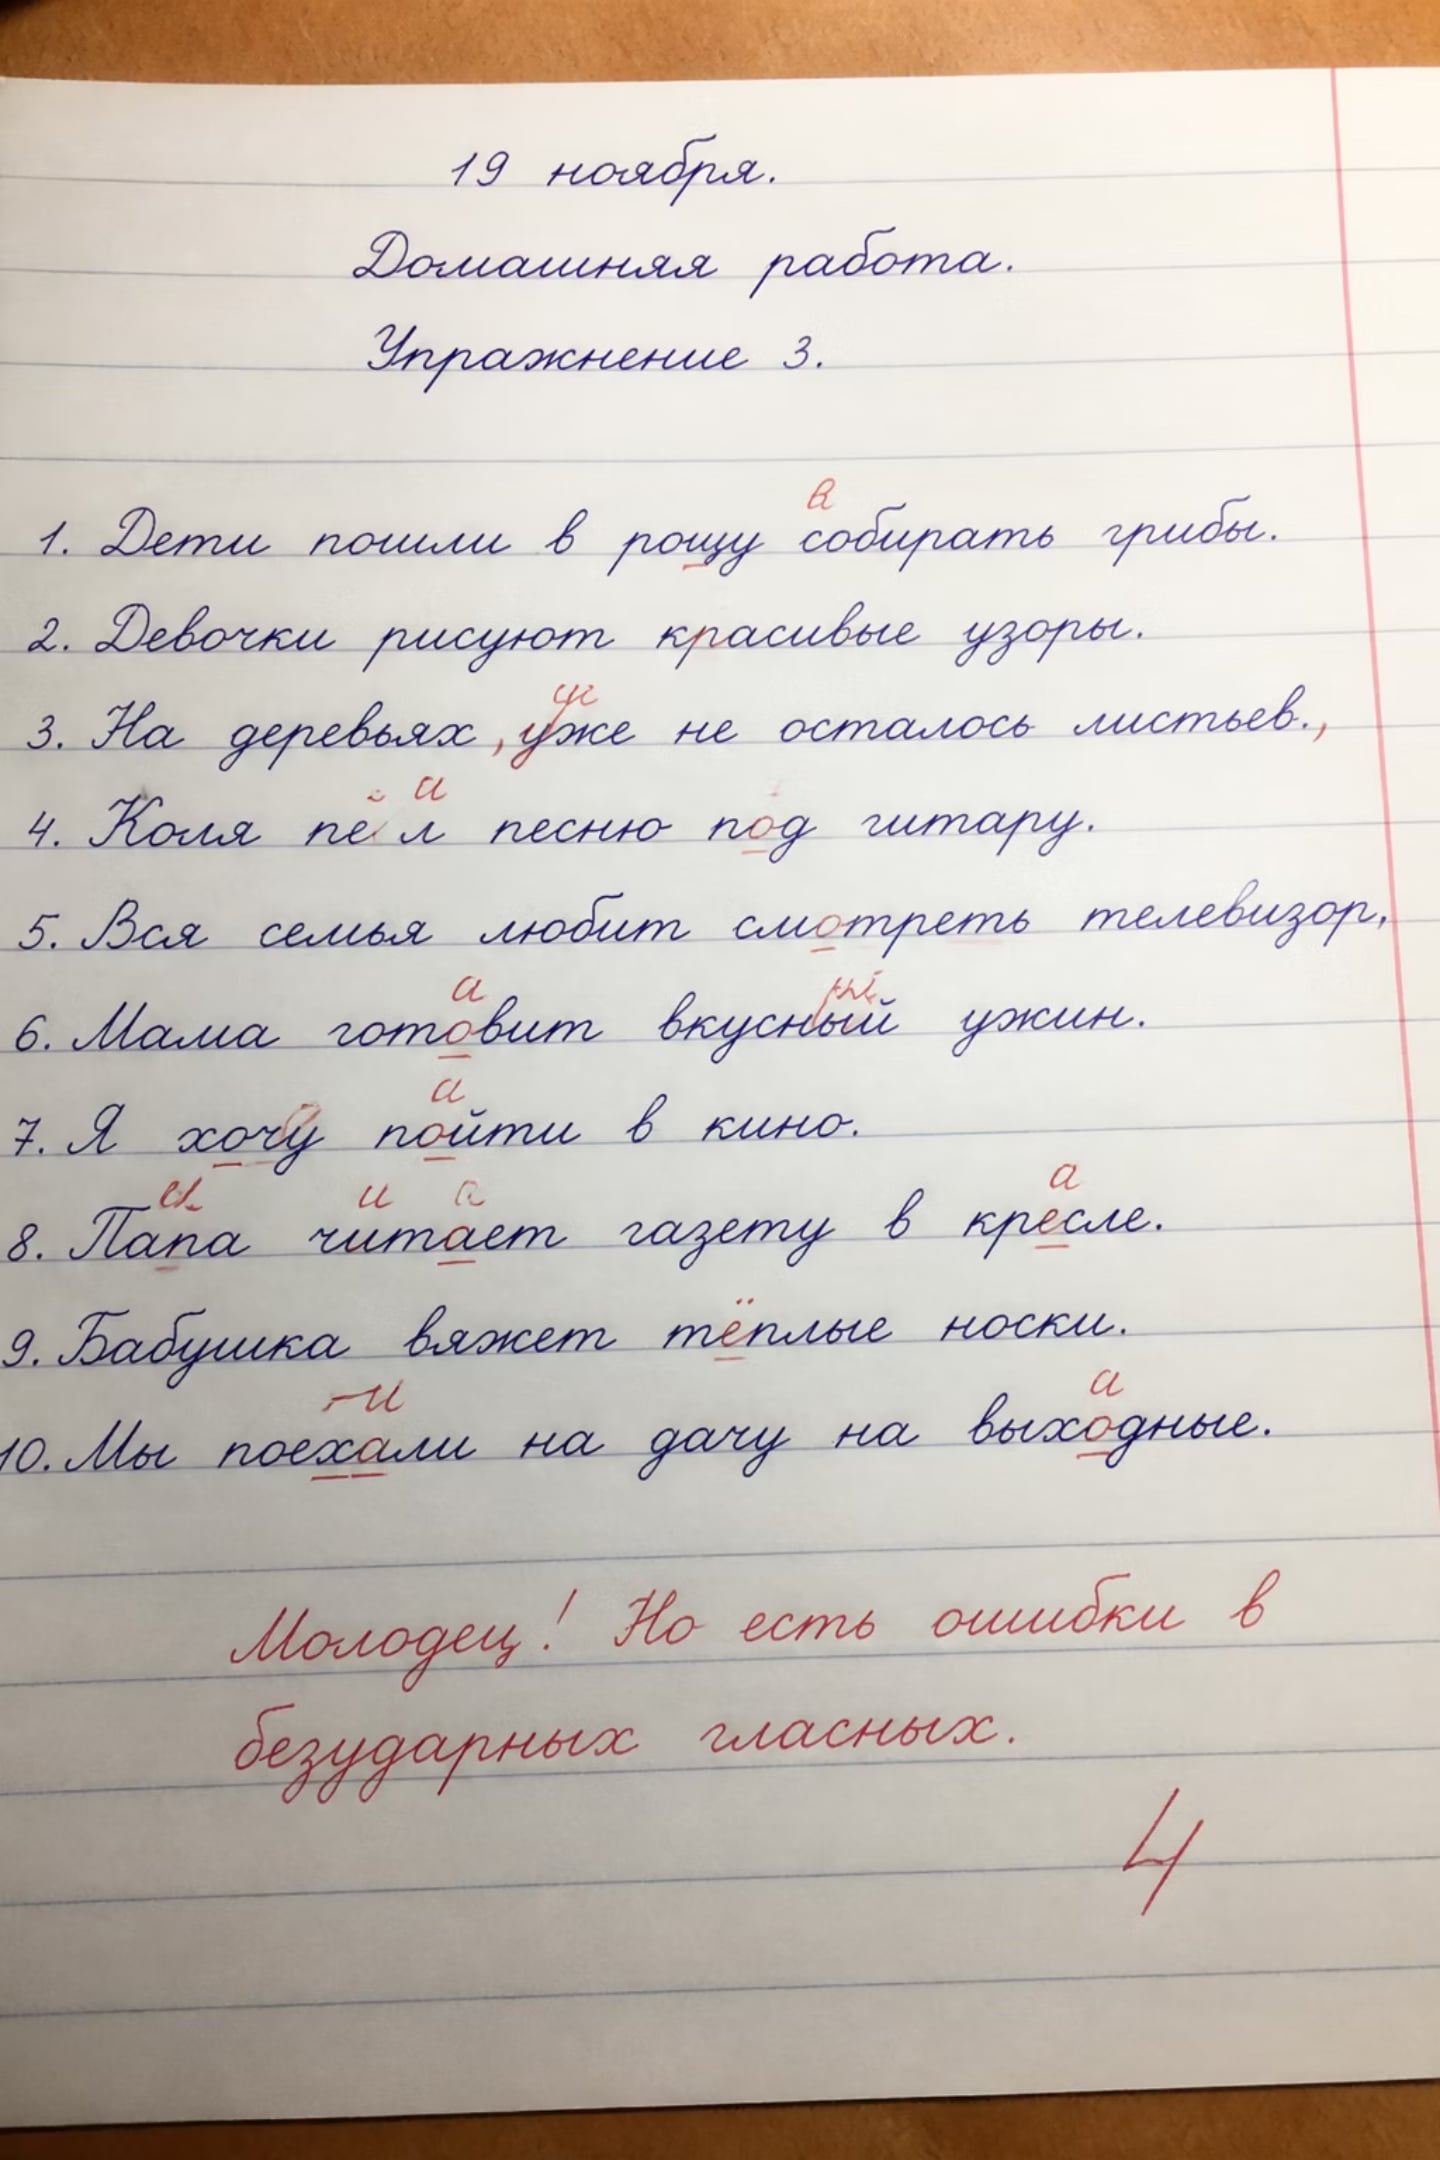 19 ноября.
Домашняя работа.
Упражнение 3.
в
1. Дети пошли в рощу собирать грибы.
2. Девочки рисуют красивые узоры.
3. На деревьях, уже не осталось листьев.,
а
4. Коля пёл песню под гитару.
5. Вся семья любит смотреть телевизор,
а
6. Мама готовит вкусный ужин.
а
7. Я хочу пойти в кино.
и а а
8. Папа читает газету в кресле.
9. Бабушка вяжет тёплые носки.
и а
10. Мы поехали на дачу на выходные.
Молодец! Но есть ошибки в
безударных гласных.
4